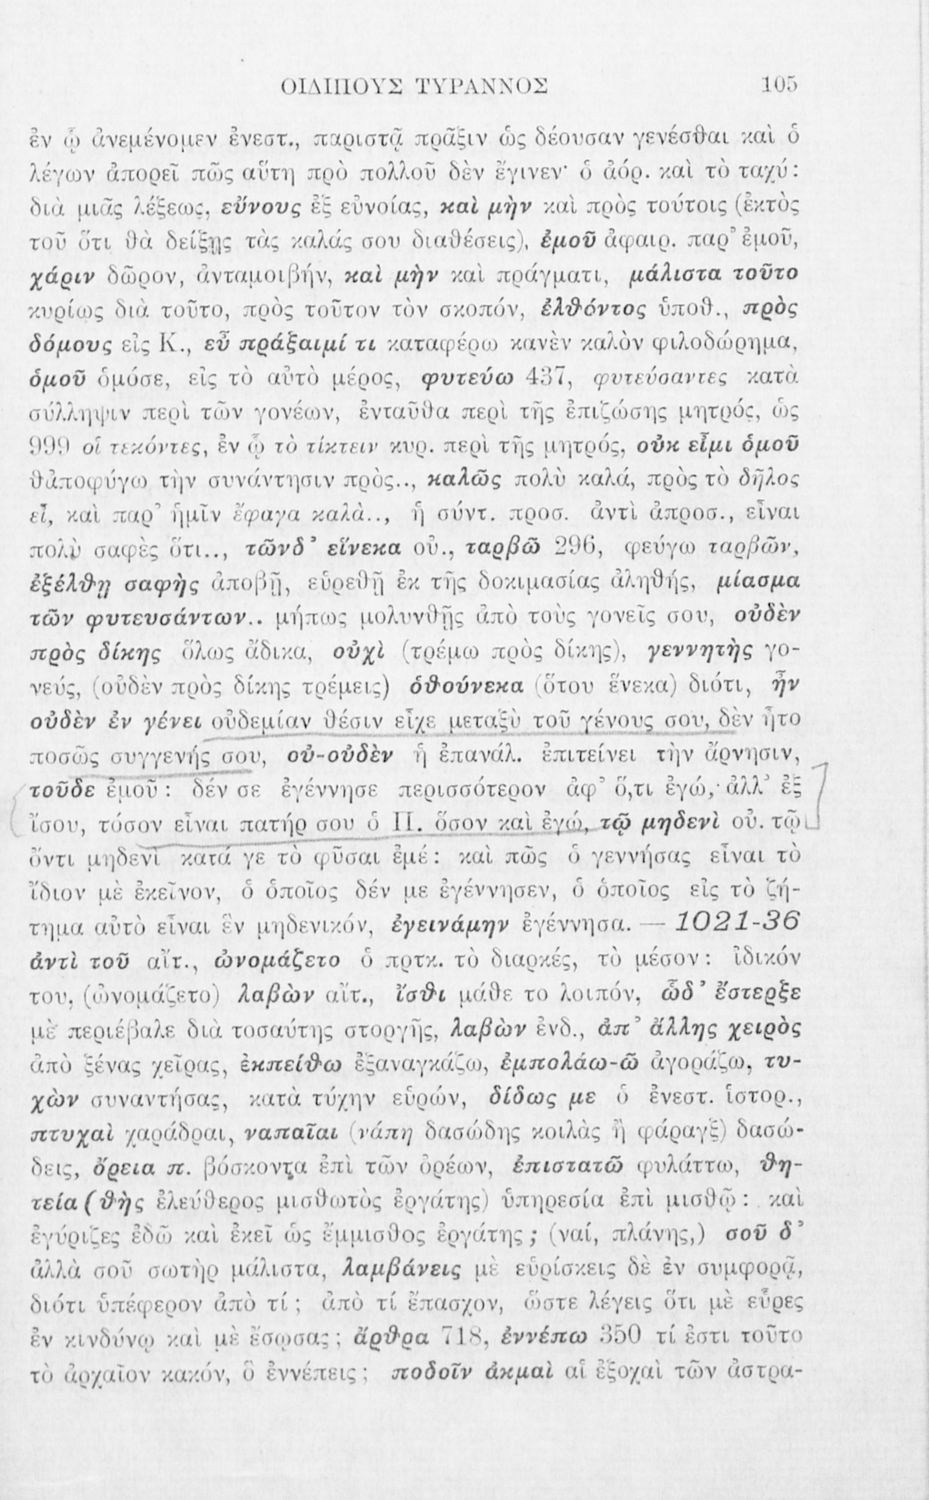 ΟΙΔΙΠΟΥΣ ΤΥΡΑΝΝΟΣ 105
ἐν ᾧ ἀνεμένομεν ἐνεστ., παριστᾷ πρᾶξιν ὡς δέουσαν γενέσθαι καὶ ὁ
λέγων ἀπορεῖ πῶς αὕτη πρὸ πολλοῦ δὲν ἔγινεν· ὁ ἀόρ. καὶ τὸ ταχύ:
διὰ μιᾶς λέξεως, εὔνους ἐξ εὐνοίας, καὶ μὴν καὶ πρὸς τούτοις (ἐκτὸς
τοῦ ὅτι θὰ δείξῃς τὰς καλάς σου διαθέσεις), ἐμοῦ ἀφαιρ. παρ᾽ ἐμοῦ,
χάριν δῶρον, ἀνταμοιβήν, καὶ μὴν καὶ πράγματι, μάλιστα τοῦτο
κυρίως διὰ τοῦτο, πρὸς τοῦτον τὸν σκοπόν, ἐλθόντος ὑποθ., πρὸς
δόμους εἰς Κ., εὖ πράξαιμί τι καταφέρω κανὲν καλὸν φιλοδώρημα,
ὁμοῦ ὁμόσε, εἰς τὸ αὐτὸ μέρος, φυτεύω 437, φυτεύσαντες κατὰ
σύλληψιν περὶ τῶν γονέων, ἐνταῦθα περὶ τῆς ἐπιζώσης μητρός, ὡς
999 οἱ τεκόντες, ἐν ᾧ τὸ τίκτειν κυρ. περὶ τῆς μητρός, οὐκ εἶμι ὁμοῦ
θἀποφύγω τὴν συνάντησιν πρὸς.., καλῶς πολὺ καλά, πρὸς τὸ δῆλος
εἶ, καὶ παρ᾽ ἡμῖν ἔφαγα καλὰ.., ἡ σύντ. προσ. ἀντὶ ἀπροσ., εἶναι
πολὺ σαφὲς ὅτι.., τῶνδ᾽ εἵνεκα οὐ., ταρβῶ 296, φεύγω ταρβῶν,
ἐξέλθῃ σαφὴς ἀποβῇ, εὑρεθῇ ἐκ τῆς δοκιμασίας ἀληθής, μίασμα
τῶν φυτευσάντων.. μήπως μολυνθῇς ἀπὸ τοὺς γονεῖς σου, οὐδὲν
πρὸς δίκης ὅλως ἄδικα, οὐχὶ (τρέμω πρὸς δίκης), γεννητὴς γο-
νεύς, (οὐδὲν πρὸς δίκης τρέμεις) ὁθούνεκα (ὅτου ἕνεκα) διότι, ἦν
οὐδὲν ἐν γένει οὐδεμίαν θέσιν εἶχε μεταξὺ τοῦ γένους σου, δὲν ἦτο
ποσῶς συγγενής σου, οὐ-οὐδὲν ἡ ἐπανάλ. ἐπιτείνει τὴν ἄρνησιν,
τοῦδε ἐμοῦ: δέν σε ἐγέννησε περισσότερον ἀφ᾽ ὅ,τι ἐγώ, ἀλλ᾽ ἐξ
ἴσου, τόσον εἶναι πατήρ σου ὁ Π. ὅσον καὶ ἐγώ, τῷ μηδενὶ οὐ. τῷ
ὄντι μηδενὶ κατά γε τὸ φῦσαι ἐμέ: καὶ πῶς ὁ γεννήσας εἶναι τὸ
ἴδιον μὲ ἐκεῖνον, ὁ ὁποῖος δέν με ἐγέννησεν, ὁ ὁποῖος εἰς τὸ ζή-
τημα αὐτὸ εἶναι ἓν μηδενικόν, ἐγεινάμην ἐγέννησα. — 1021-36
ἀντὶ τοῦ αἴτ., ὠνομάζετο ὁ πρτκ. τὸ διαρκές, τὸ μέσον: ἰδικόν
του, (ὠνομάζετο) λαβὼν αἴτ., ἴσθι μάθε το λοιπόν, ὧδ᾽ ἔστερξε
μὲ περιέβαλε διὰ τοσαύτης στοργῆς, λαβὼν ἐνδ., ἀπ᾽ ἄλλης χειρὸς
ἀπὸ ξένας χεῖρας, ἐκπείθω ἐξαναγκάζω, ἐμπολάω-ῶ ἀγοράζω, τυ-
χὼν συναντήσας, κατὰ τύχην εὑρών, δίδως με ὁ ἐνεστ. ἱστορ.,
πτυχαὶ χαράδραι, ναπαῖαι (νάπη δασώδης κοιλὰς ἢ φάραγξ) δασώ-
δεις, ὄρεια π. βόσκοντα ἐπὶ τῶν ὀρέων, ἐπιστατῶ φυλάττω, θη-
τεία (θὴς ἐλεύθερος μισθωτὸς ἐργάτης) ὑπηρεσία ἐπὶ μισθῷ: καὶ
ἐγύριζες ἐδῶ καὶ ἐκεῖ ὡς ἔμμισθος ἐργάτης; (ναί, πλάνης,) σοῦ δ᾽
ἀλλὰ σοῦ σωτὴρ μάλιστα, λαμβάνεις μὲ εὑρίσκεις δὲ ἐν συμφορᾷ,
διότι ὑπέφερον ἀπὸ τί; ἀπὸ τί ἔπασχον, ὥστε λέγεις ὅτι μὲ εὗρες
ἐν κινδύνῳ καὶ μὲ ἔσωσας; ἄρθρα 718, ἐννέπω 350 τί ἐστι τοῦτο
τὸ ἀρχαῖον κακόν, ὃ ἐννέπεις; ποδοῖν ἀκμαὶ αἱ ἐξοχαὶ τῶν ἀστρα-